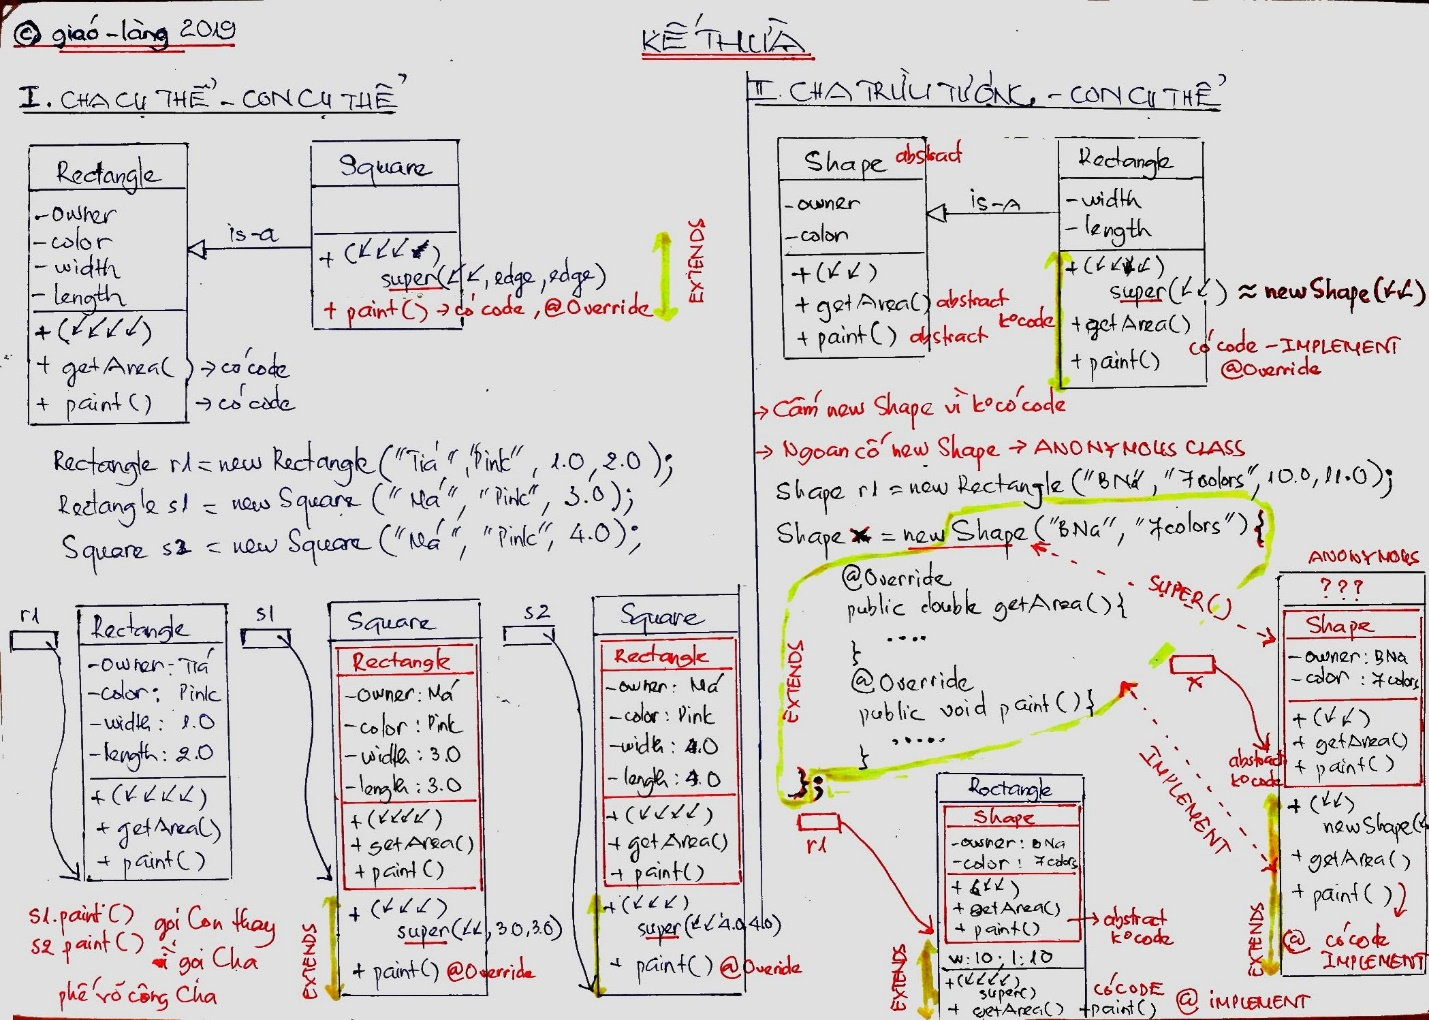 © giáo-làng 2019
KẾ THỪA
I. CHA CỤ THỂ - CON CỤ THỂ
Rectangle
- owner
- color
- width
- length
+ (↙↙↙↙)
+ getArea() → có code
+ paint() → có code
is-a
Square
+ (↙↙↙)
super(↙↙, edge, edge)
+ paint() → có code, @Override
EXTENDS
Rectangle r1 = new Rectangle("Tiá", "Pink", 1.0, 2.0);
Rectangle s1 = new Square("Má", "Pink", 3.0);
Square s2 = new Square("Má", "Pink", 4.0);
r1
Rectangle
- owner: Tiá
- color: Pink
- width: 1.0
- length: 2.0
+ (↙↙↙↙)
+ getArea()
+ paint()
s1
Square
Rectangle
- owner: Má
- color: Pink
- width: 3.0
- length: 3.0
+ (↙↙↙↙)
+ getArea()
+ paint()
+ (↙↙↙)
super(↙↙, 3.0, 3.0)
+ paint() @Override
EXTENDS
s2
Square
Rectangle
- owner: Má
- color: Pink
- width: 4.0
- length: 4.0
+ (↙↙↙↙)
+ getArea()
+ paint()
+ (↙↙↙)
super(↙↙ 4.0, 4.0)
+ paint() @Overide
s1.paint()
s2 paint()
gọi Con thay
vì gọi Cha
phế võ công Cha
II. CHA TRỪU TƯỢNG - CON CỤ THỂ
Shape abstract
- owner
- color
+ (↙↙)
+ getArea() abstract
ko code
+ paint() abstract
is-A
Rectangle
- width
- length
+ (↙↙↙↙)
super(↙↙) ≈ new Shape(↙↙)
+ getArea()
+ paint()
có code - IMPLEMENT
@Override
→ Cấm new Shape vì ko có code
→ Ngoan cố new Shape → ANONYMOUS CLASS
Shape r1 = new Rectangle("BNa", "7colors", 10.0, 11.0);
Shape x = new Shape("BNa", "7colors") {
@Override
public double getArea() {
....
}
@Override
public void paint() {
.....
}
};
EXTENDS
SUPER()
IMPLEMENT
x
ANONYMOUS
???
Shape
- owner: BNa
- color: 7colors
+ (↙↙)
+ getArea()
+ paint()
abstract
ko code
+ (↙↙)
new Shape(
+ getArea()
+ paint()
@ có code
IMPLEMENT
EXTENDS
r1
Rectangle
Shape
- owner: BNa
- color: 7colors
+ (↙↙)
+ getArea()
+ paint()
→ abstract
ko code
w: 10; l: 10
+ (↙↙↙↙)
super()
+ getArea() + paint()
có CODE @ IMPLEMENT
EXTENDS